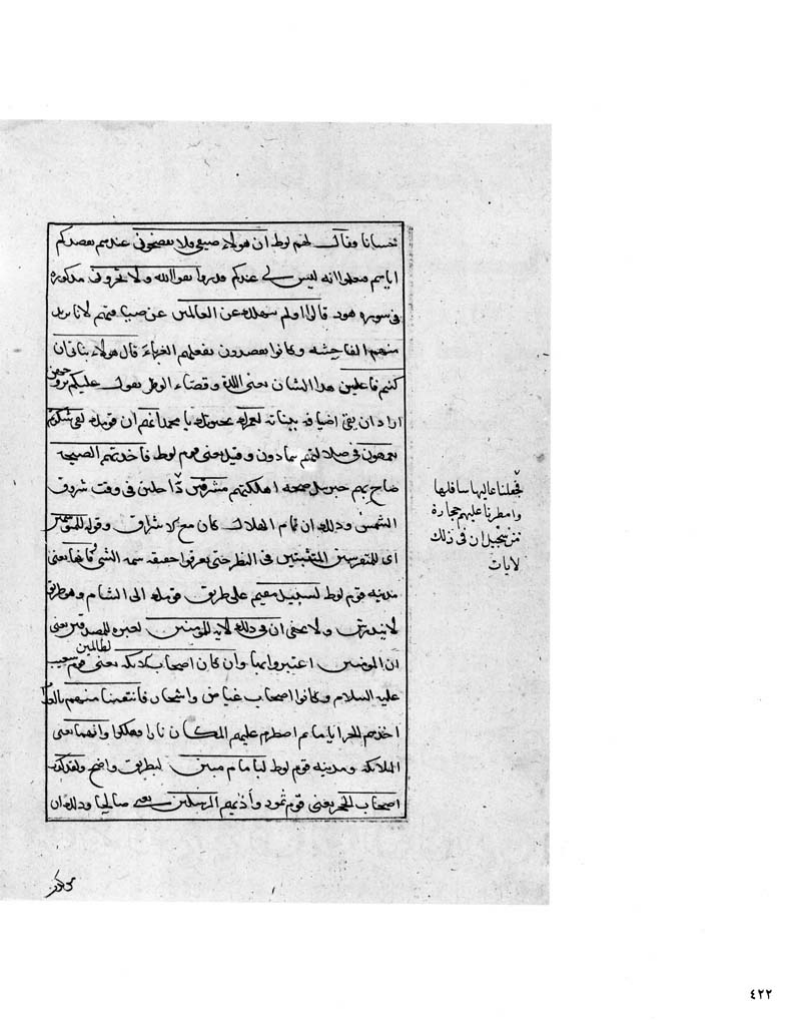 حسانا وقال لهم لوط ان هولاء ضيفي فلا تفضحوني عندهم بقصدكم
اياهم فتعلموا انه ليس لي عندكم قدر واتقوا الله ولا تخزون مذكوره
في سوره هود قالوا اولم ننهك عن العالمين عن ضيافتهم لانا نريد
منهم الفاحشه وكانوا يقصدون بفعلهم الغرباء قال هولاء بناتي ان
كنتم فاعلين هذا الشان يعنى اللذة وقضاء الوطر يقول عليكم بتزوجهن
اراد ان يقي اضيافه ببناته لعمرك بحيوتك يا محمد انهم ان قومك لفي سكرتهم
يعمهون في ضلالتهم يتمادون وقيل يعنى قوم لوط فاخذتهم الصيحه
صاح بهم جبريل صيحه اهلكتهم مشرقين داخلين في وقت شروق
الشمس وذلك ان تمام الهلاك كان مع الاشراق وقوله للمتوسمين
اى للمتفرسين المتثبتين في النظر حتى يعرفوا حقيقه سمه الشى وانها يعنى
مدينه قوم لوط لبسبيل مقيم على طريق قومك الى الشام وهو طريق
لا يندرس ولا يخفى ان في ذلك لايه للمومنين لعبره للمصدقين يعنى
ان المومنين اعتبروا بها وان كان اصحاب الايكه يعنى قوم شعيب
لظالمين
عليه السلام وكانوا اصحاب غياض واشجار فانتقمنا منهم بالعذاب
اخذهم الحر اياما ثم اضطرم عليهم المكان نارا فهلكوا وانهما يعنى
الايكه ومدينه قوم لوط لبامام مبين لبطريق واضح ولقد كذب
اصحاب الحجر يعنى قوم ثمود واذيتهم المرسلين يعنى صالحا وذلك ان
فجعلنا عاليها سافلها
وامطرنا عليهم حجارة
من سجيل ان في ذلك
لايات
٤٢٢